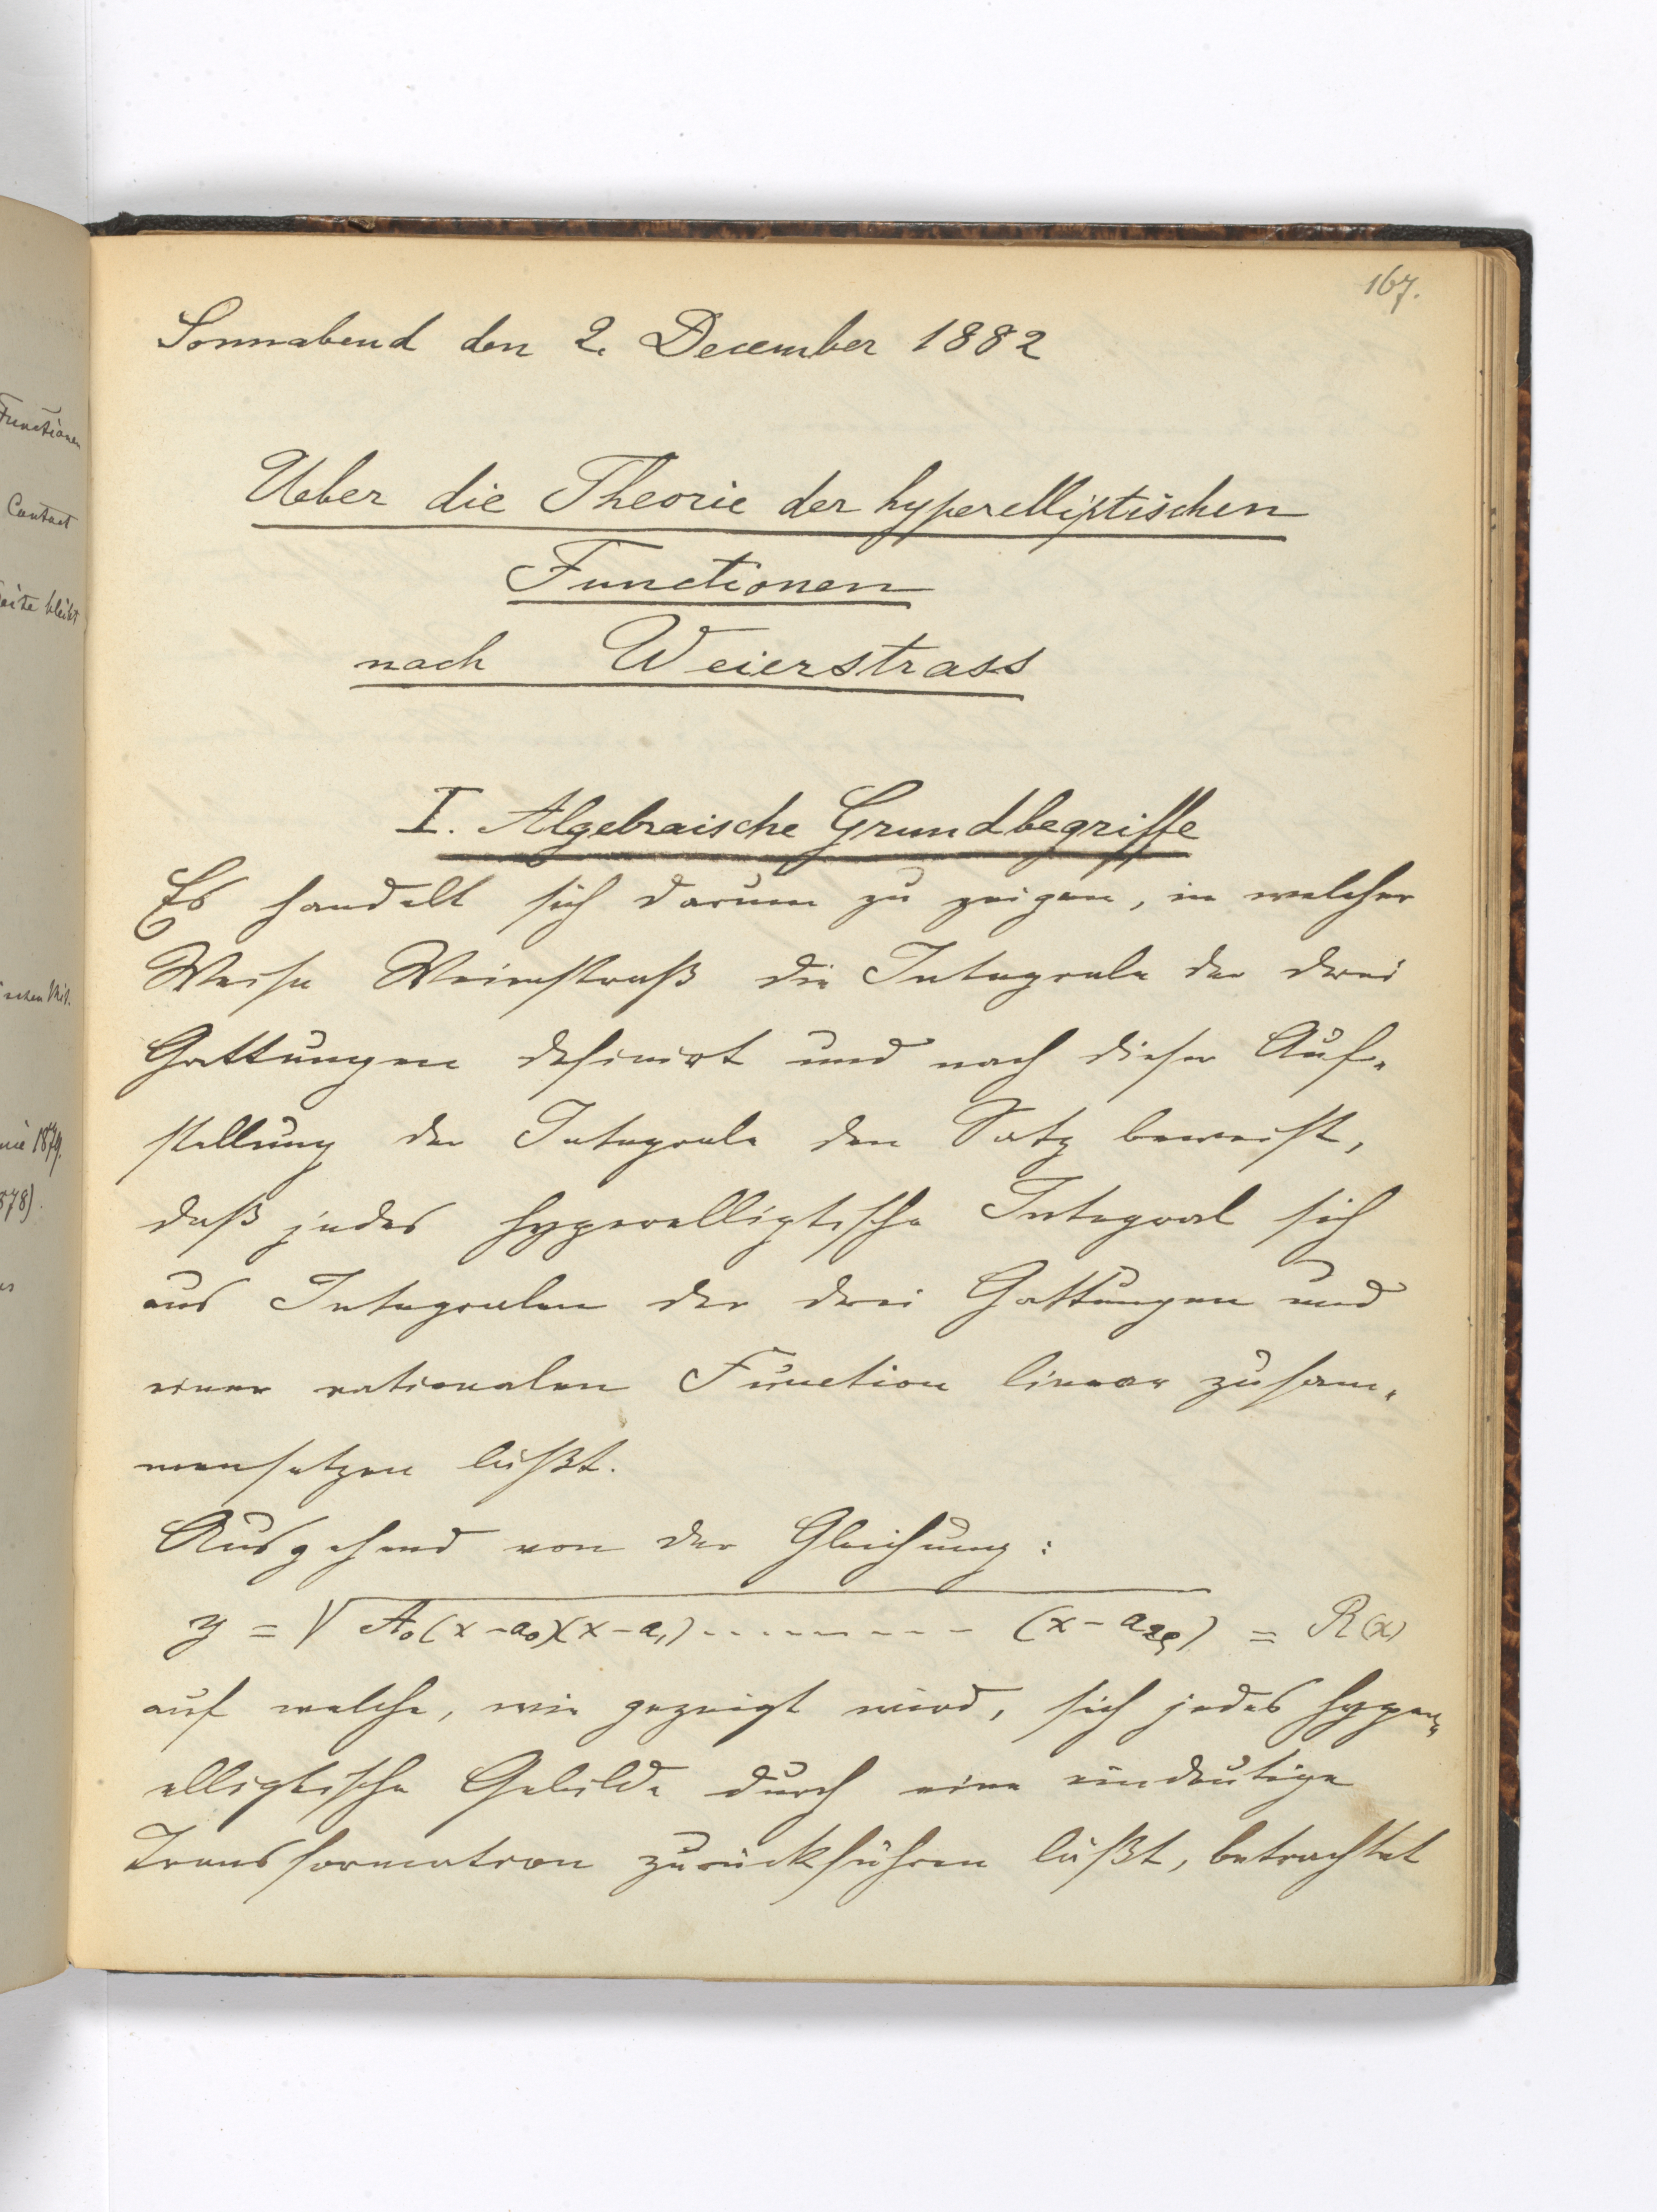 167.
Sonnabend den 2. December 1882
Ueber die Theorie der hyperelliptischen
Functionen
nach Weierstrass
I. Algebraische Grundbegriffe
Es handelt sich darum zu zeigen, in welcher
Weise Weierstraß die Integrale der drei
Gattungen definirt und nach dieser Auf-
stellung der Integrale den Satz beweist,
daß jedes hyperelliptische Integral sich
aus Integralen der drei Gattungen und
einer rationalen Function linear zusam-
mensetzen läßt.
Ausgehend von der Gleichung:
y = √A₀(x-a₀)(x-a₁)---------(x-a₂ᵨ) = R(x)
auf welche, wie gezeigt wird, sich jedes hyper-
elliptische Gebilde durch eine eindeutige
Transformation zurückführen läßt, betrachtet
Functionen
Contact
bleibt
1879.
878).